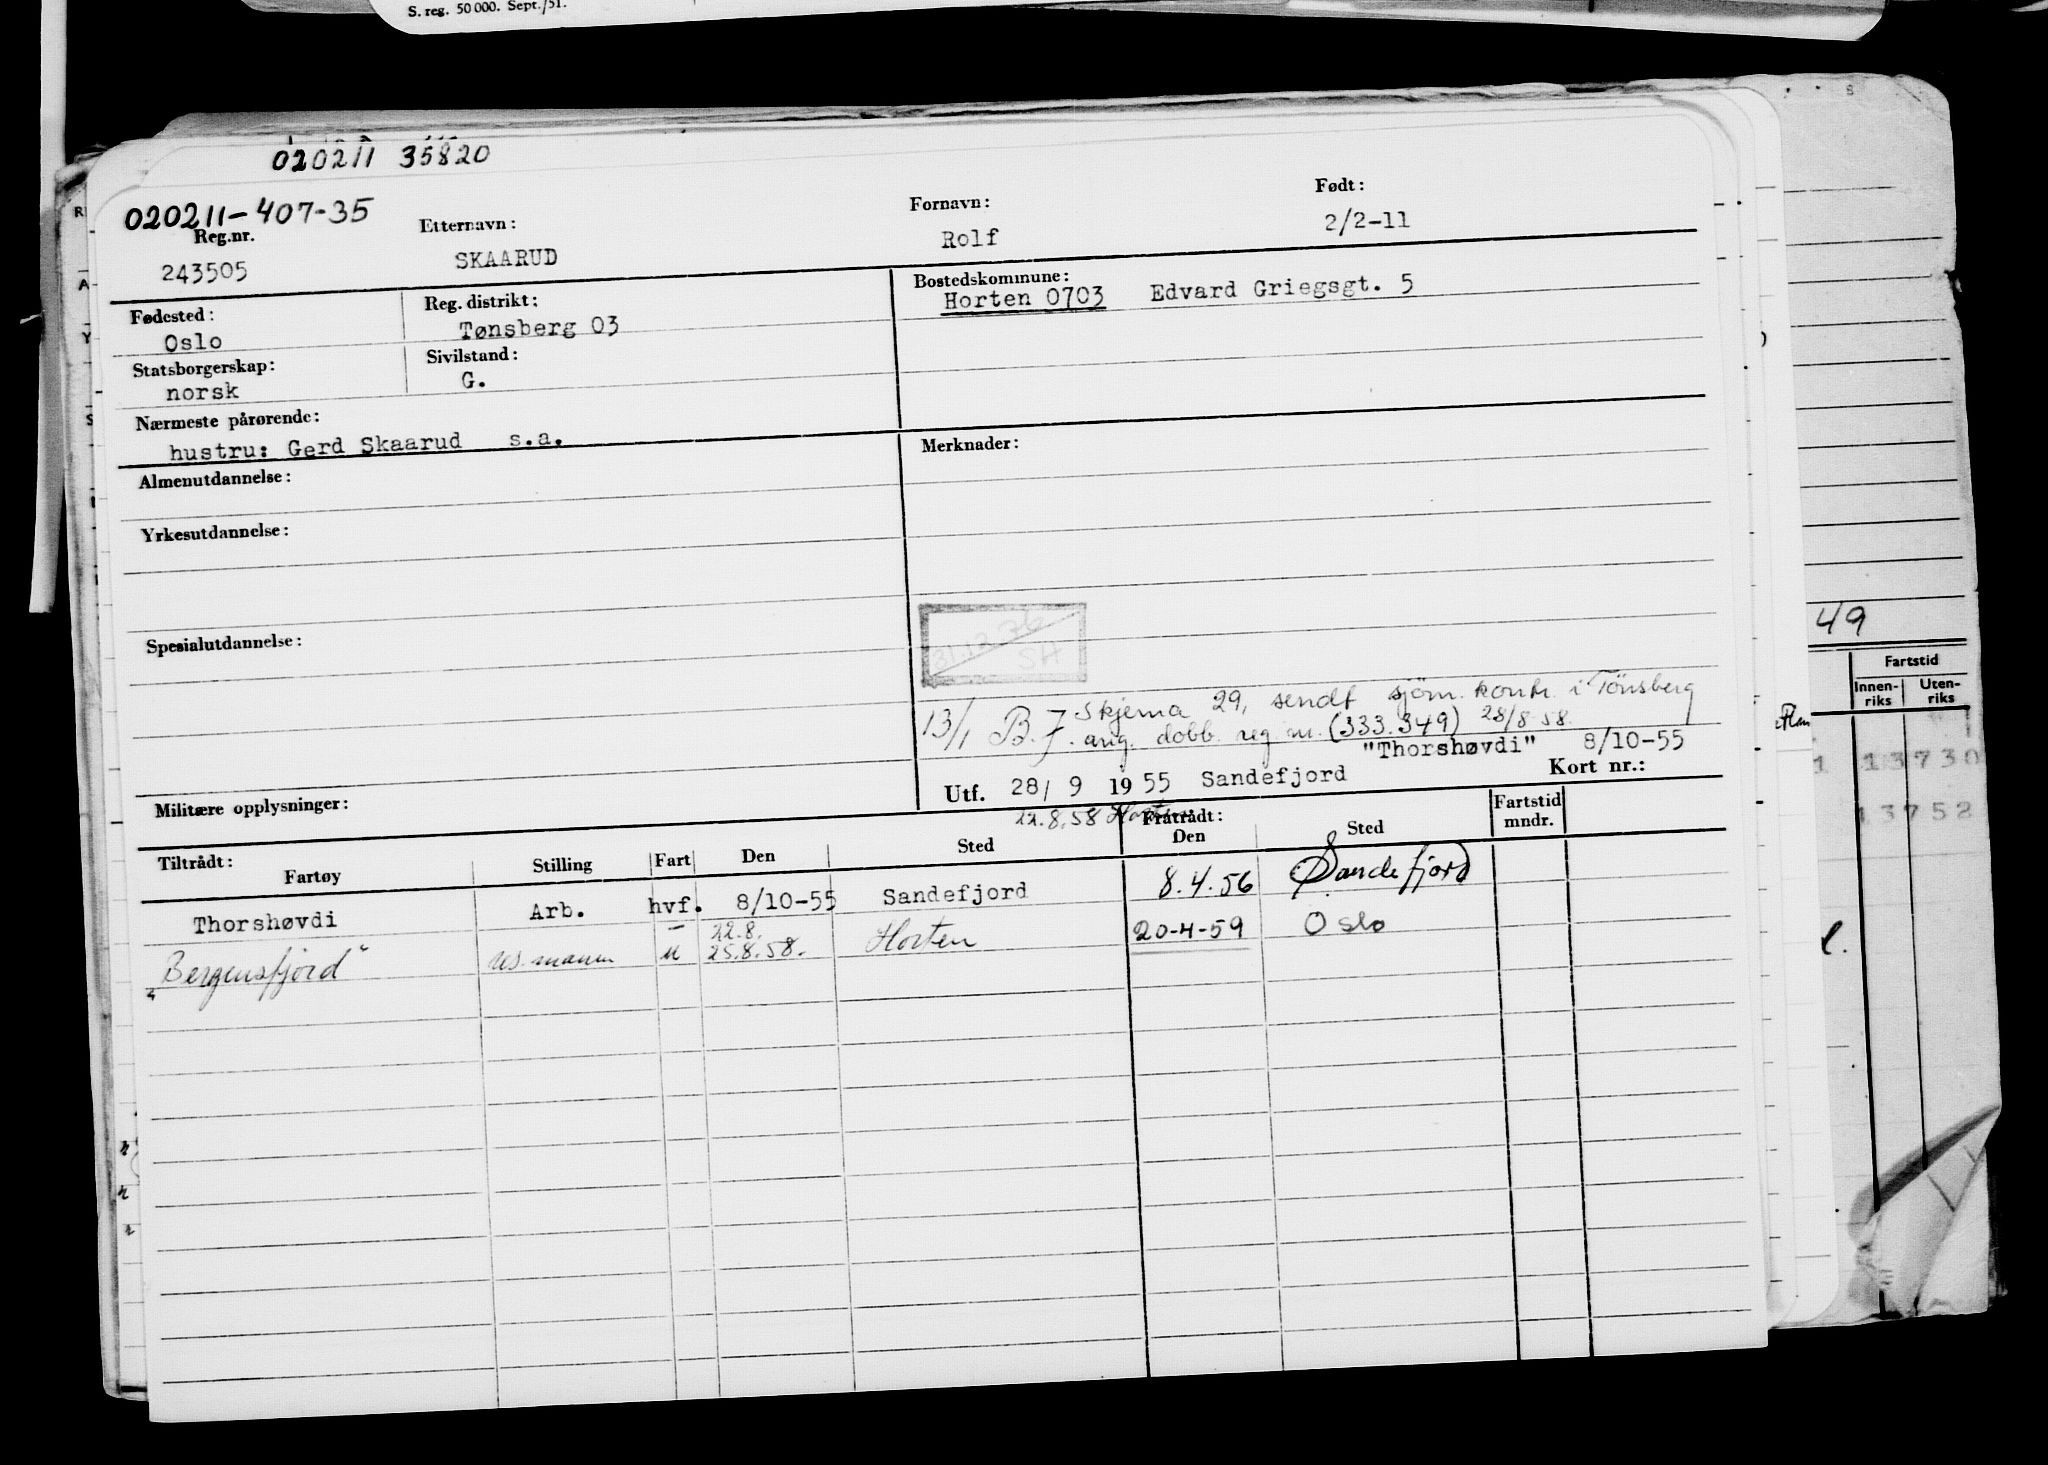 S. reg. 50 000. Sept./51.
020211 35820
020211-407-35
Reg.nr. Etternavn: Fornavn: Født:
243505 SKAARUD Rolf 2/2-11
Fødested: Reg. distrikt: Bostedskommune:
Oslo Tønsberg 03 Horten 0703 Edvard Griegsgt. 5
Statsborgerskap: Sivilstand:
norsk G.
Nærmeste pårørende:
hustru: Gerd Skaarud s.a.
Almenutdannelse: Merknader:
Yrkesutdannelse:
Spesialutdannelse:
31.12.76
SH
13/1 B.F. Skjema 29, sendt sjöm. kontr. i Tönsberg
ang. dobb. reg. nr. (333.349) 28/8 58.
"Thorshøvdi" 8/10-55
Utf. 28/ 9 1955 Sandefjord Kort nr.:
Militære opplysninger:
22.8.58 Horten
Tiltrådt: Fratrådt: Fartstid
Fartøy Stilling Fart Den Sted Den Sted mndr.
Thorshøvdi Arb. hvf. 8/10-55 Sandefjord 8.4.56 Sandefjord
22.8.
"Bergensfjord" res. mann u 25.8.58. Horten 20-4-59 Oslo
49
Fartstid
Innen-
riks
Uten-
riks
1 13730
13752
l.